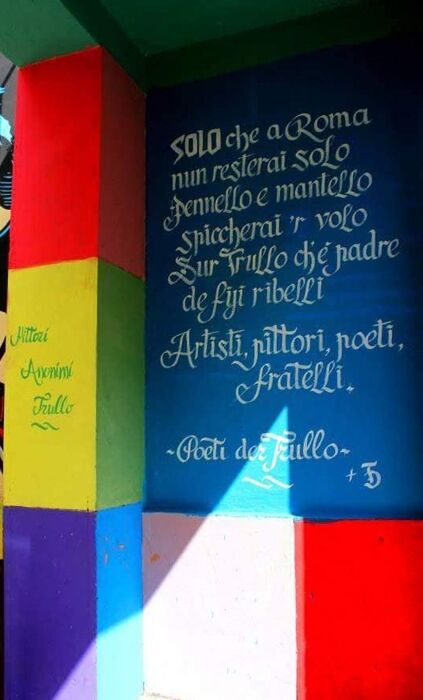 SOLO che a Roma
nun resterai solo
pennello e mantello
spiccherai 'r volo
Sur Trullo ch'è padre
de fiji ribelli
Artisti, pittori, poeti,
fratelli.
~Poeti der Trullo~
+ TD
Pittori
Anonimi
Trullo